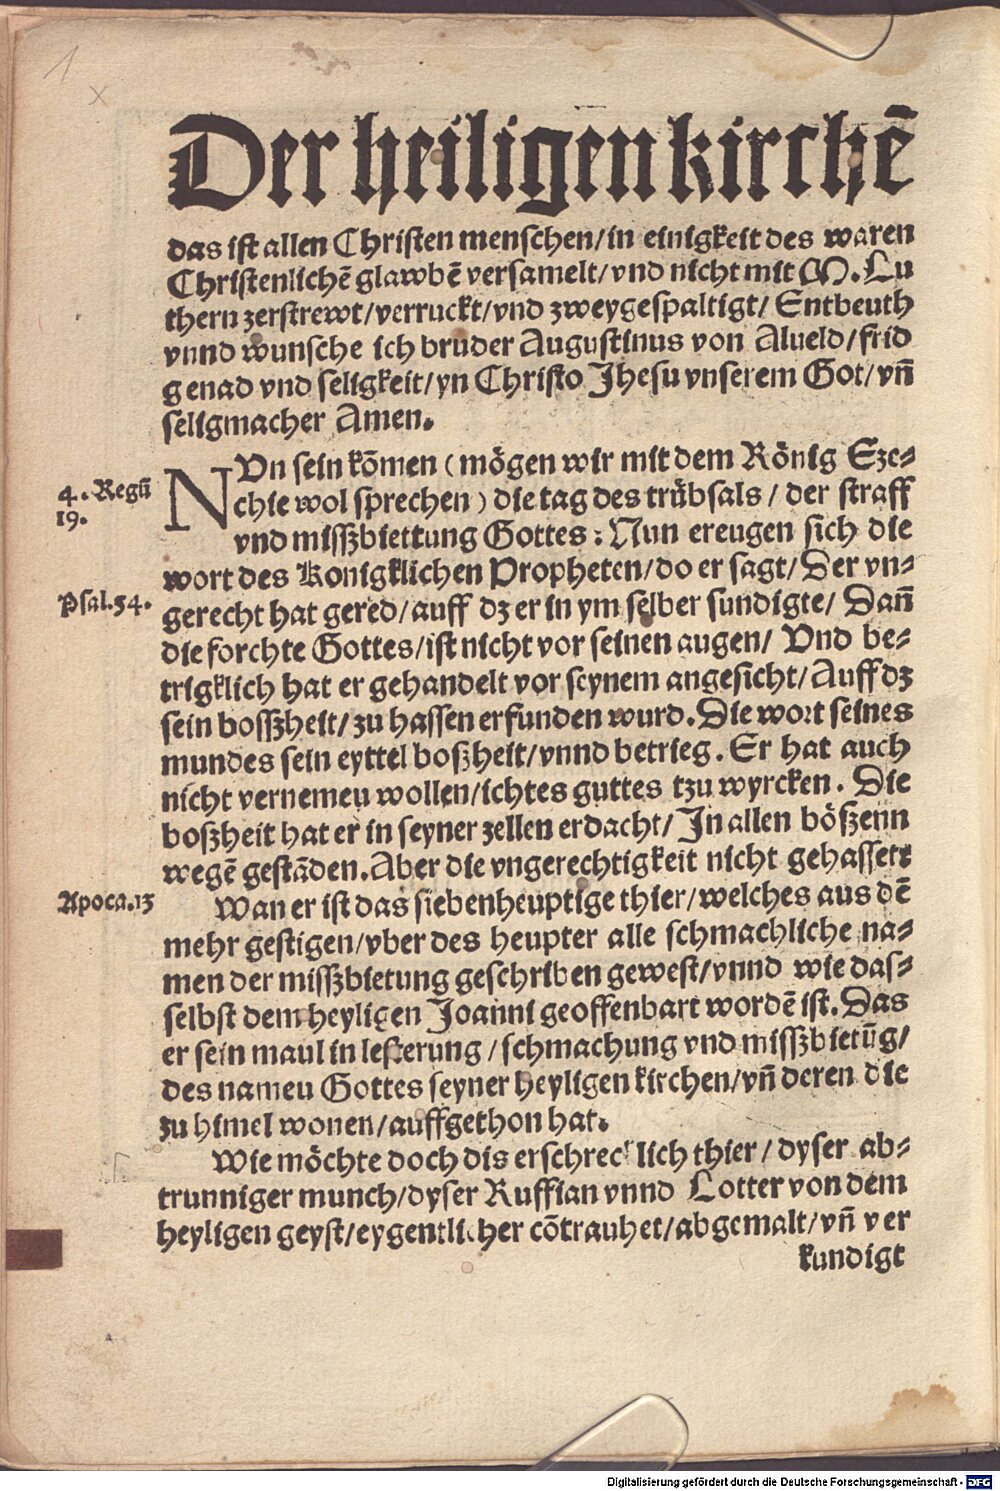 1
x
Der heiligen kirchē
das ist allen Christen menschen/in einigkeit des waren
Christenlichē glawbē versamelt/vnd nicht mit M. Lu
thern zerstrewt/verruckt/vnd zweygespaltigt/ Entbeuth
vnnd wunsche ich bruder Augustinus von Alueld/frid
genad vnd seligkeit/yn Christo Jhesu vnserem Got/vn̄
seligmacher Amen.
4. Regū
19.
NVn sein kōmen (mögen wir mit dem König Eze-
chie wol sprechen) die tag des trübsals/ der straff
vnd misszbiettung Gottes: Nun ereugen sich die
wort des Konigklichen Propheten/do er sagt/ Der vn-
Psal.54.
gerecht hat gered/auff dz er in ym selber sundigte/ Dañ
die forchte Gottes/ist nicht vor seinen augen/ Vnd be-
trigklich hat er gehandelt vor seynem angesicht/Auff dz
sein bosszheit/zu hassen erfunden wurd. Die wort seines
mundes sein eyttel boßheit/vnnd betrieg. Er hat auch
nicht vernemeu wollen/ichtes guttes tzu wyrcken. Die
boßheit hat er in seyner zellen erdacht/ In allen bößenn
wegē gestāden. Aber die vngerechtigkeit nicht gehasset:
Apoca.13
Wan er ist das siebenheuptige thier/welches aus dē
mehr gestigen/vber des heupter alle schmachliche na-
men der misszbietung geschriben gewest/vnnd wie das-
selbst dem heyligen Joanni geoffenbart wordē ist. Das
er sein maul in lesterung/schmachung vnd misszbietūg/
des nameu Gottes seyner heyligen kirchen/vn̄ deren die
zu himel wonen/auffgethon hat.
Wie möchte doch dis erschrecklich thier/ dyser ab-
trunniger munch/dyser Ruffian vnnd Lotter von dem
heyligen geyst/eygentlicher cōtrauhet/abgemalt/vn̄ ver
kundigt
Digitalisierung gefördert durch die Deutsche Forschungsgemeinschaft - DFG